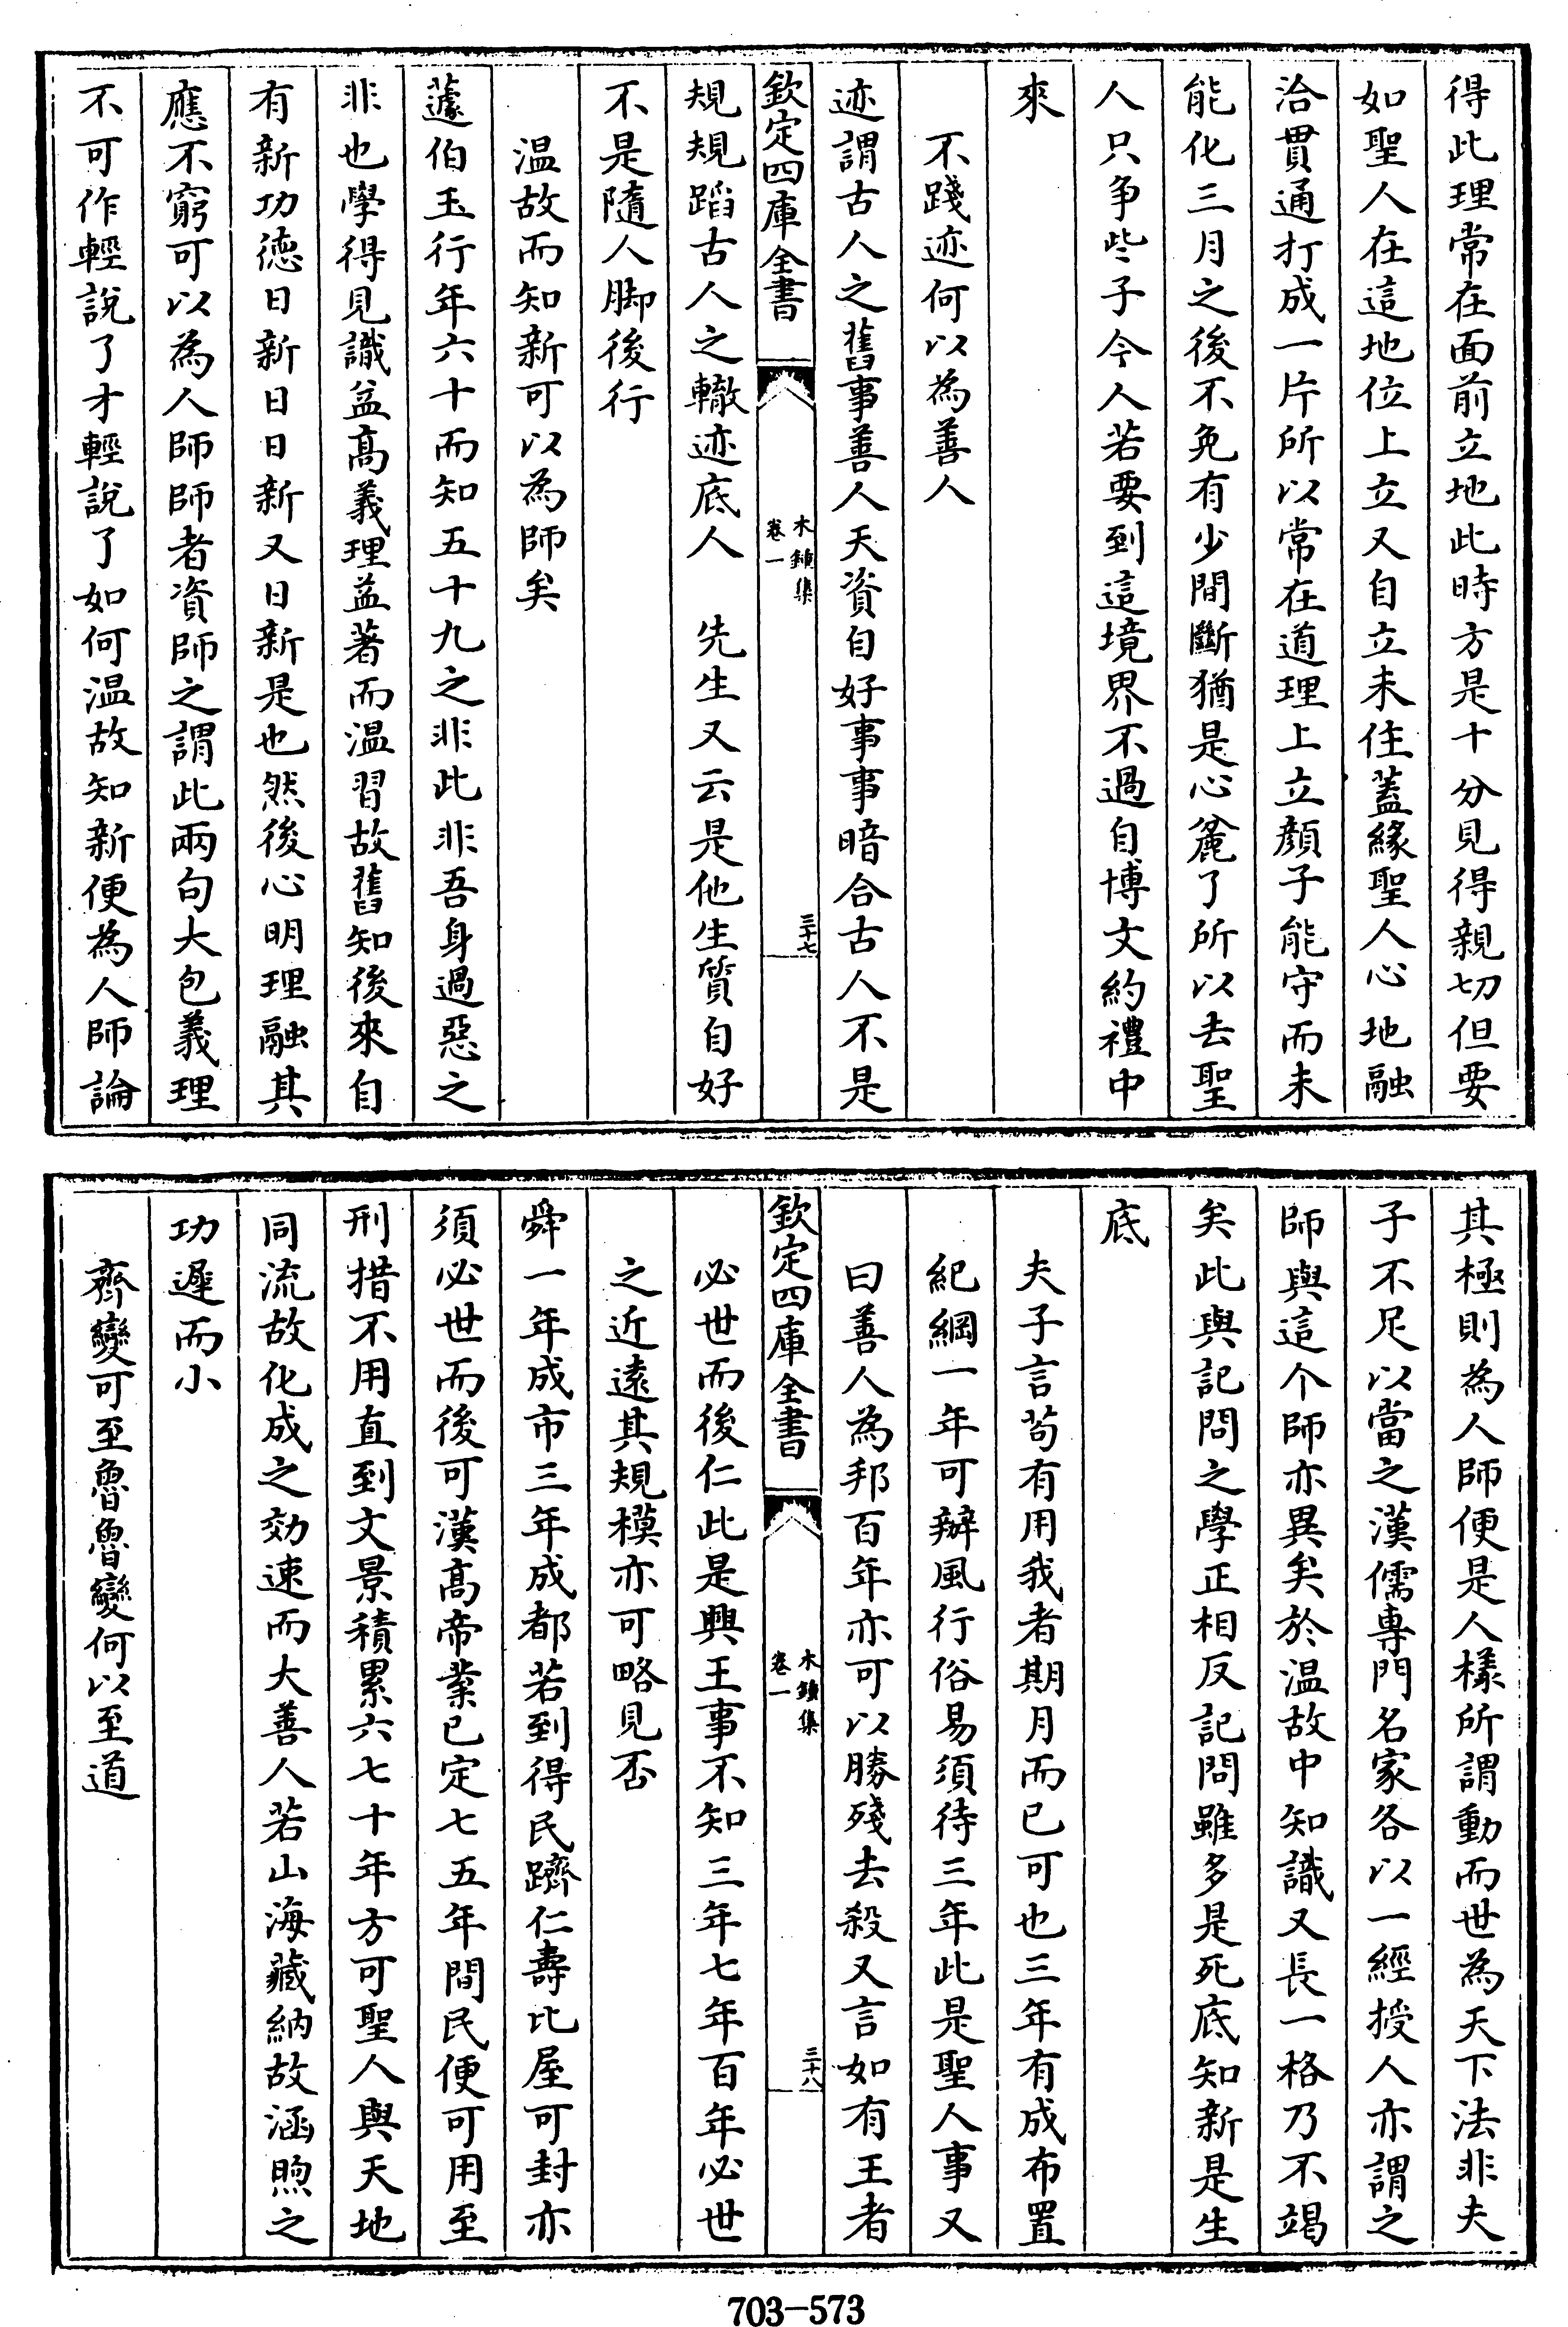 得此理常在面前立地此時方是十分見得親切但要
如聖人在這地位上立又自立未住蓋緣聖人心地融
洽貫通打成一片所以常在道理上立顔子能守而未
能化三月之後不免有少間斷猶是心麄了所以去聖
人只争些子今人若要到這境界不過自博文約禮中
來
不踐迹何以為善人
迹謂古人之舊事善人天資自好事事暗合古人不是
欽定四庫全書
木鐘集
卷一
三十七
規規蹈古人之轍迹底人 先生又云是他生質自好
不是隨人脚後行
温故而知新可以為師矣
蘧伯玉行年六十而知五十九之非此非吾身過惡之
非也學得見識益高義理益著而温習故舊知後來自
有新功徳日新日日新又日新是也然後心明理融其
應不窮可以為人師師者資師之謂此兩句大包義理
不可作輕說了才輕說了如何温故知新便為人師論
其極則為人師便是人樣所謂動而世為天下法非夫
子不足以當之漢儒專門名家各以一經授人亦謂之
師與這个師亦異矣於温故中知識又長一格乃不竭
矣此與記問之學正相反記問雖多是死底知新是生
底
夫子言苟有用我者期月而已可也三年有成布置
紀綱一年可辦風行俗易須待三年此是聖人事又
曰善人為邦百年亦可以勝殘去殺又言如有王者
欽定四庫全書
木鐘集
卷一
三十八
必世而後仁此是興王事不知三年七年百年必世
之近遠其規模亦可略見否
舜一年成市三年成都若到得民躋仁壽比屋可封亦
須必世而後可漢高帝業已定七五年間民便可用至
刑措不用直到文景積累六七十年方可聖人與天地
同流故化成之効速而大善人若山海藏納故涵煦之
功遲而小
齊變可至魯魯變何以至道
703-573